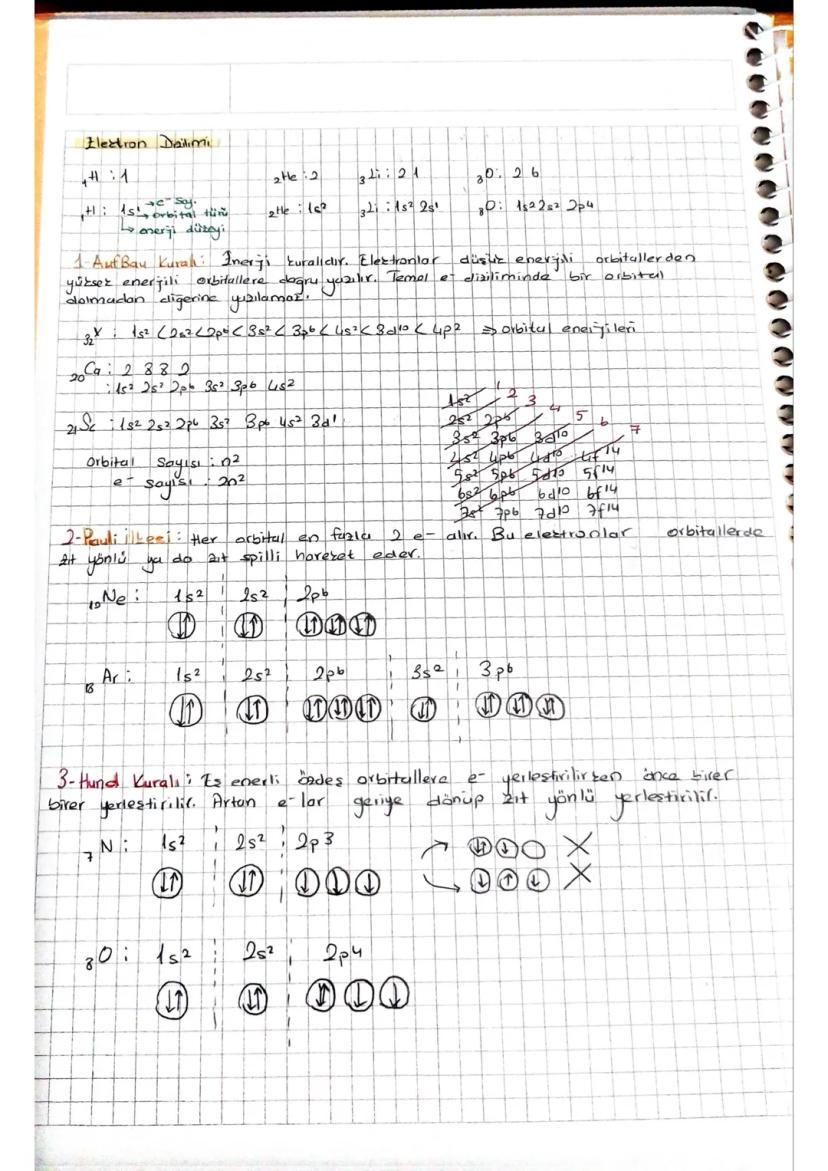 Elektron Dizilimi
₁H : 1 ₂He : 2 ₃Li : 2 1 ₈O : 2 6
₁H : 1s¹ → e⁻ say. ₂He : 1s² ₃Li : 1s² 2s¹ ₈O : 1s² 2s² 2p4
→ orbital türü
→ enerji düzeyi
1-AufBau Kuralı: Enerji kuralıdır. Elektronlar düşük enerjili orbitallerden
yüksek enerjili orbitallere doğru yazılır. Temel e- diziliminde bir orbital
dolmadan diğerine yazılamaz.
₃₂X : 1s² < 2s² < 2p6 < 3s² < 3p6 < 4s² < 3d10 < 4p2 ⇒ orbital enerjileri
₂₀Ca : 2 8 8 2
: 1s² 2s² 2p6 3s² 3p6 4s²
₂₁Sc : 1s² 2s² 2p6 3s² 3p6 4s² 3d¹
Orbital sayısı : n²
e- sayısı : 2n²
1 2 3 4 5 6 7
1s²
2s² 2p6
3s² 3p6 3d10
4s² 4p6 4d10 4f14
5s² 5p6 5d10 5f14
6s² 6p6 6d10 6f14
7s² 7p6 7d10 7f14
2-Pauli İlkesi : Her orbital en fazla 2 e- alır. Bu elektronlar orbitallerde
zıt yönlü ya da zıt spilli hareket eder.
₁₀Ne : 1s² 2s² 2p6
↓↑ ↓↑ ↓↑ ↓↑ ↓↑
₁₈Ar : 1s² 2s² 2p6 3s² 3p6
↓↑ ↓↑ ↓↑ ↓↑ ↓↑ ↓↑ ↓↑ ↓↑ ↓↑
3-Hund Kuralı : Eş enerli özdeş orbitallere e- yerleştirilirken önce birer
birer yerleştirilir. Artan e-lar geriye dönüp zıt yönlü yerleştirilir.
₇N : 1s² 2s² 2p3
↓↑ ↓↑ ↓ ↓ ↓
↓↑ ↓ ○ X
↓ ↑ ↓ X
₈O : 1s² 2s² 2p4
↓↑ ↓↑ ↓↑ ↓ ↓